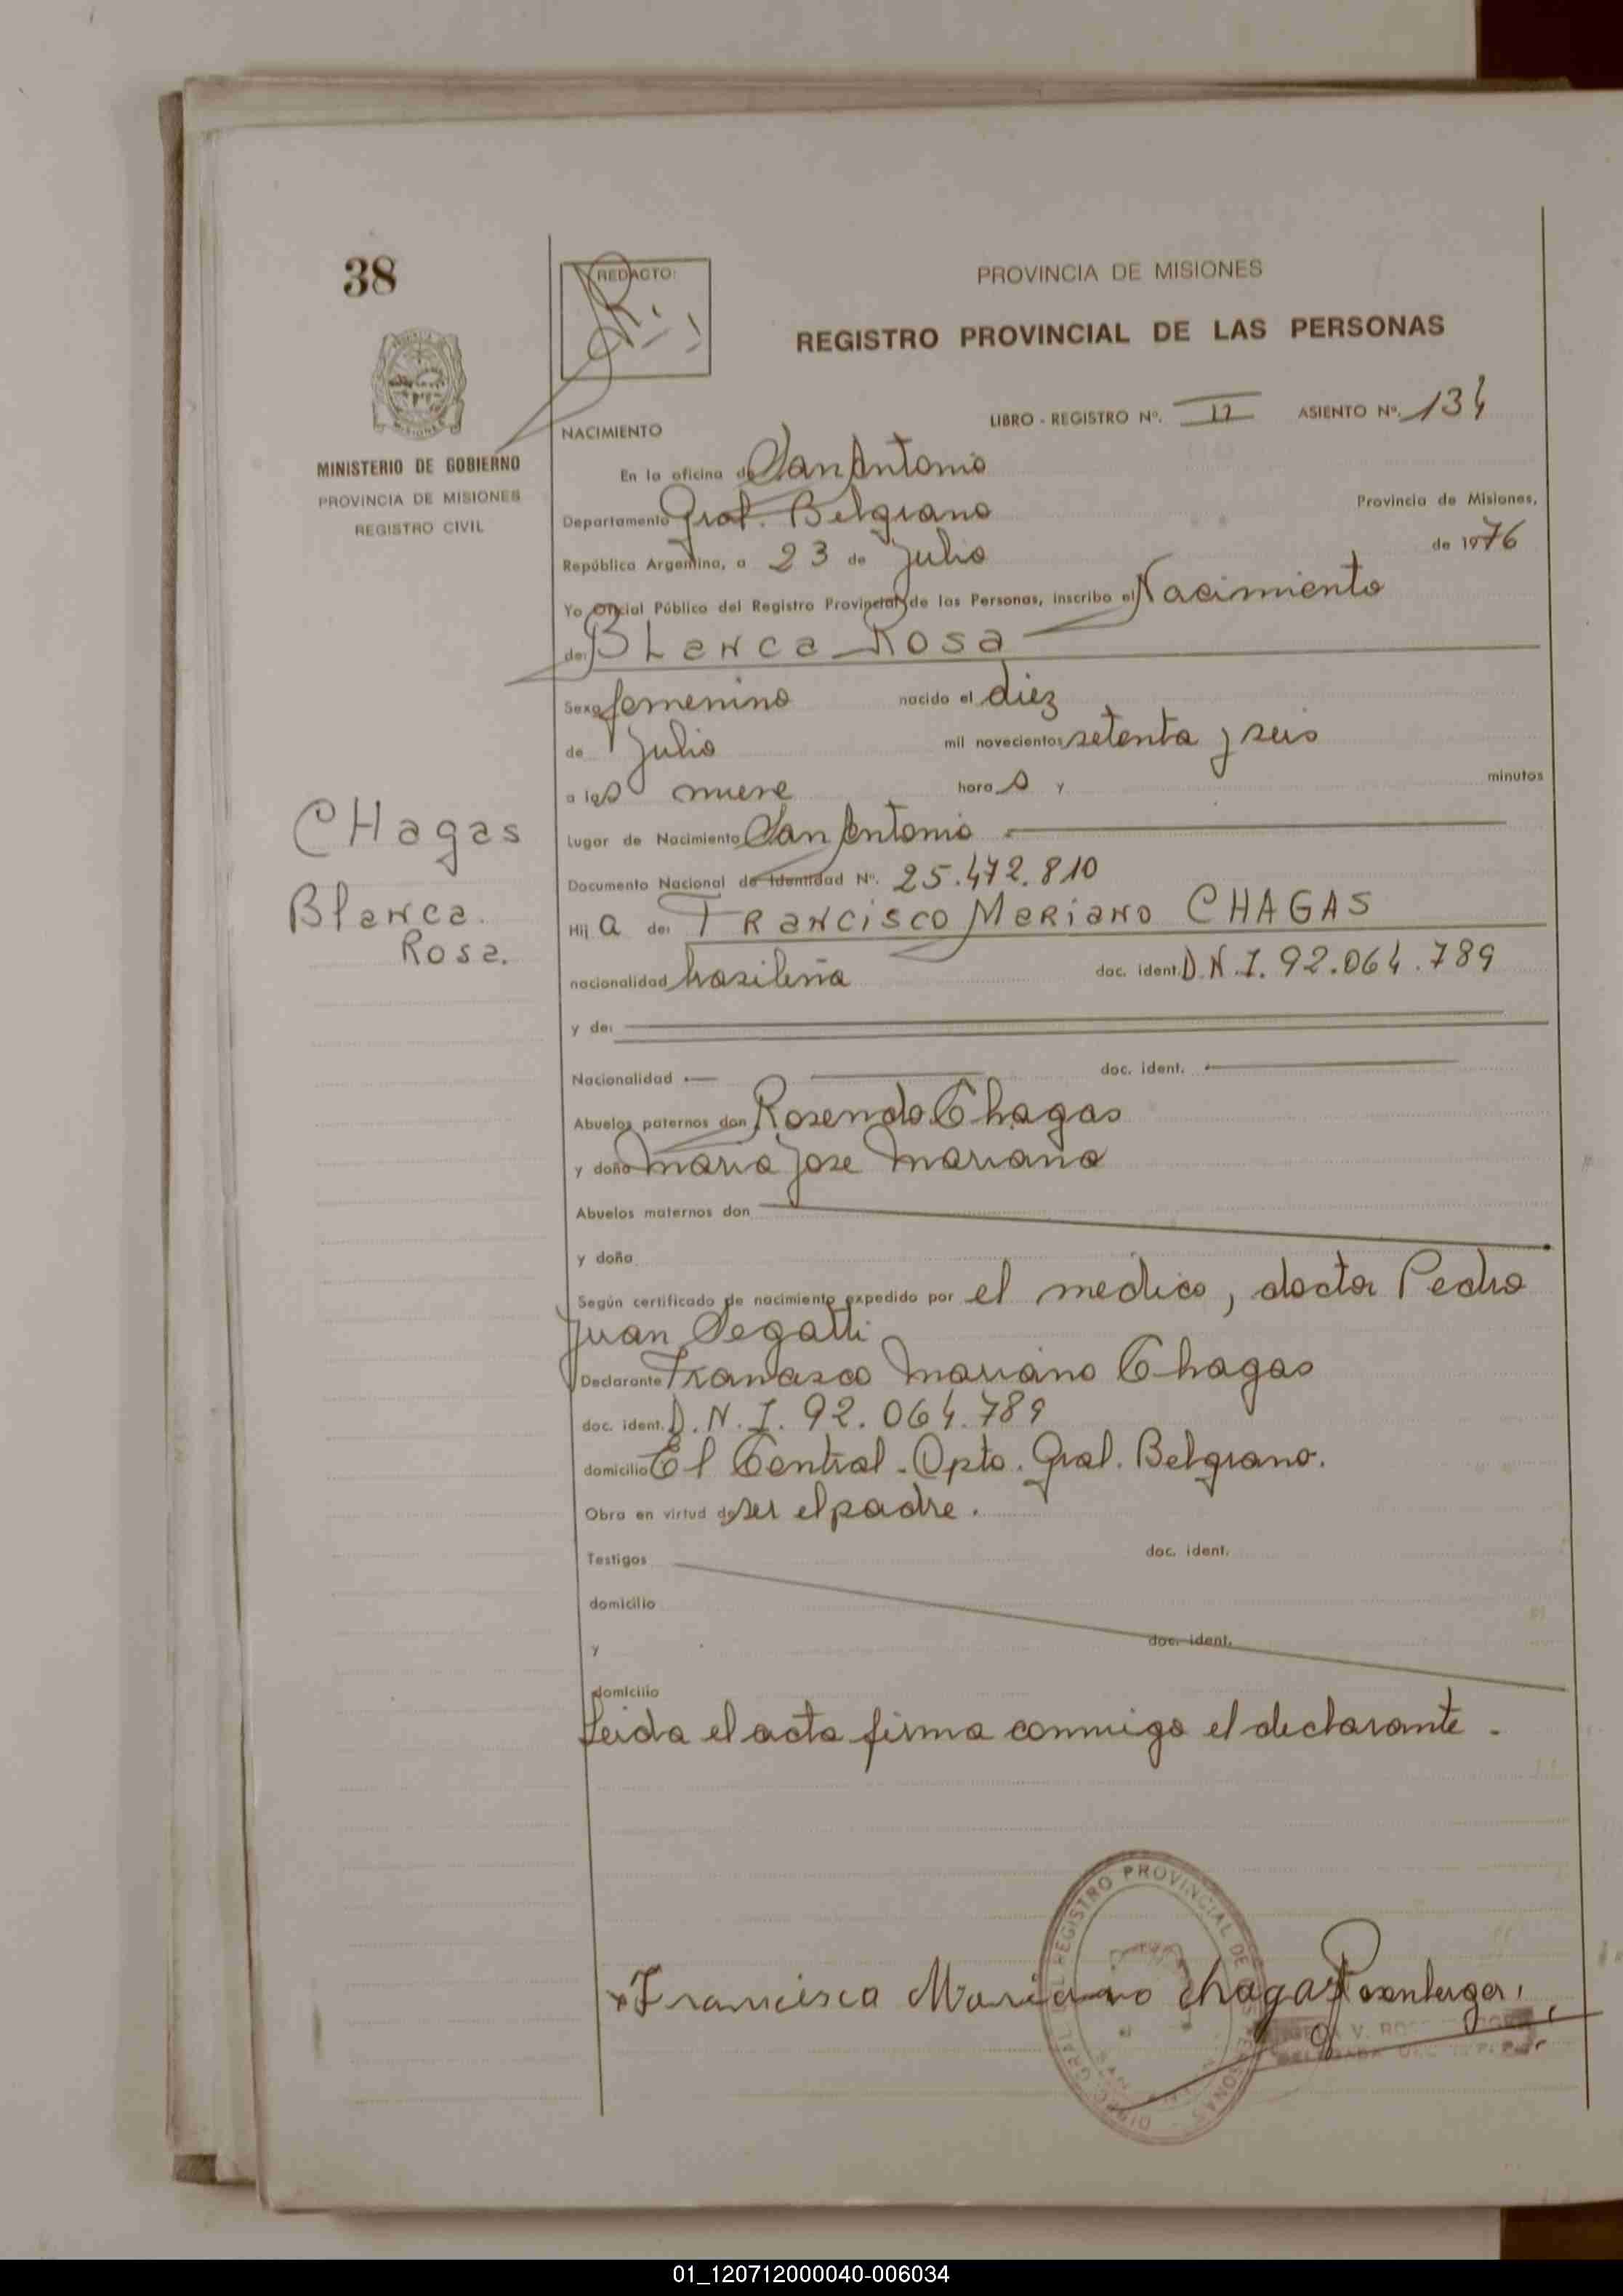 38
REDACTO:
PROVINCIA DE MISIONES
REGISTRO PROVINCIAL DE LAS PERSONAS
LIBRO - REGISTRO Nº. II ASIENTO Nº. 134
NACIMIENTO
MINISTERIO DE GOBIERNO
PROVINCIA DE MISIONES
REGISTRO CIVIL
En la oficina de San Antonio
Departamento Gral. Belgrano Provincia de Misiones,
República Argentina, a 23 de Julio de 1976
Yo Oficial Público del Registro Provincial de las Personas, inscribo el Nacimiento
de: Blanca Rosa
Sexo femenino nacido el diez
de Julio mil novecientos setenta y seis
a las nueve hora s y minutos
Lugar de Nacimiento San Antonio
Documento Nacional de Identidad Nº. 25.472.810
CHagas
Blanca
Rosa.
Hij a de: FRancisco Mariano CHAGAS
nacionalidad brasileña doc. ident. D.N.I. 92.064.789
y de:
Nacionalidad doc. ident.
Abuelos paternos don Rosendo Chagas
y doña Maria Jose Mariano
Abuelos maternos don
y doña
Según certificado de nacimiento expedido por el medico, doctor Pedro
Juan Segatti
Declarante Francisco Mariano Chagas
doc. ident. D.N.I. 92.064.789
domicilio El Central - Dpto. Gral. Belgrano.
Obra en virtud de ser el padre.
Testigos doc. ident.
domicilio
y doc. ident.
domicilio
Leida el acta firma conmigo el declarante -
Francisco Mariano Chagas
REGISTRO PROVINCIAL DE
01_120712000040-006034